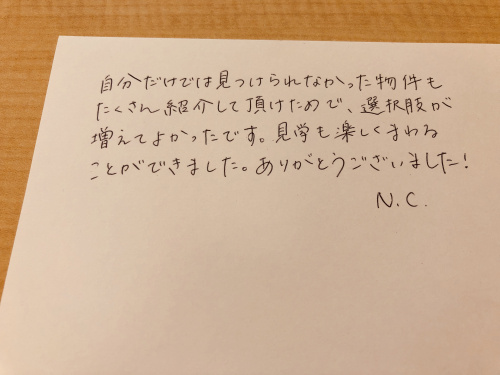 自分だけでは見つけられなかった物件も
たくさん紹介して頂けたので、選択肢が
増えてよかったです。見学も楽しくまわる
ことができました。ありがとうございました！
N.C.